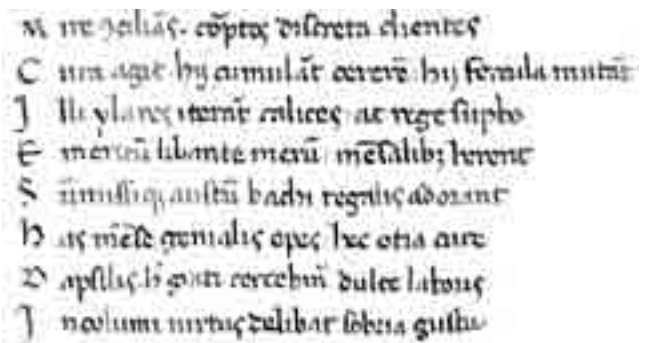 M cōptos discreta clientes
C ura agit hij cumulāt cererē hij fercula mutāt
J lli ylares iterāt calices ac rege
E meritū libante merū mēsalib; herent
S haustū bachi regalis adorant
h as mēse genialis opes hec otia aure
D apsilis dulce laboris
J ncolumi uirtus delibat sobria gustu